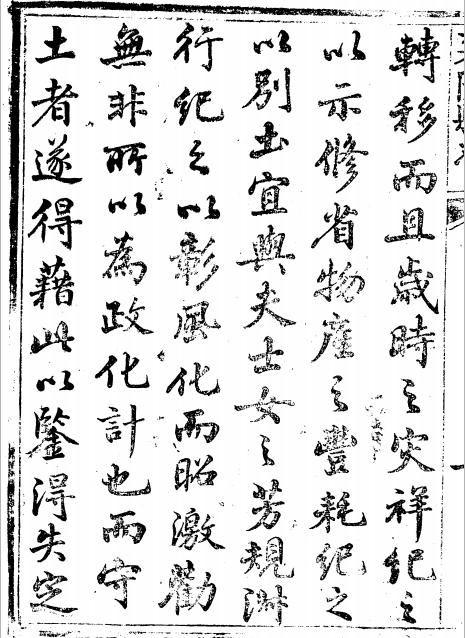 轉移而且歲時之灾祥紀之
以示修省物產之豐耗紀之
以別土宜與夫士女之芳規淑
行紀之以彰風化而昭激勸
無非所以為政化計也而守
土者遂得藉此以鑒得失定